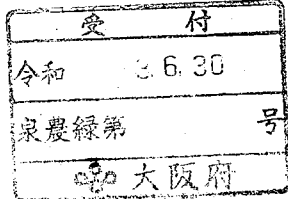 受付
令和 3.6.30
泉農緑第 号
大阪府